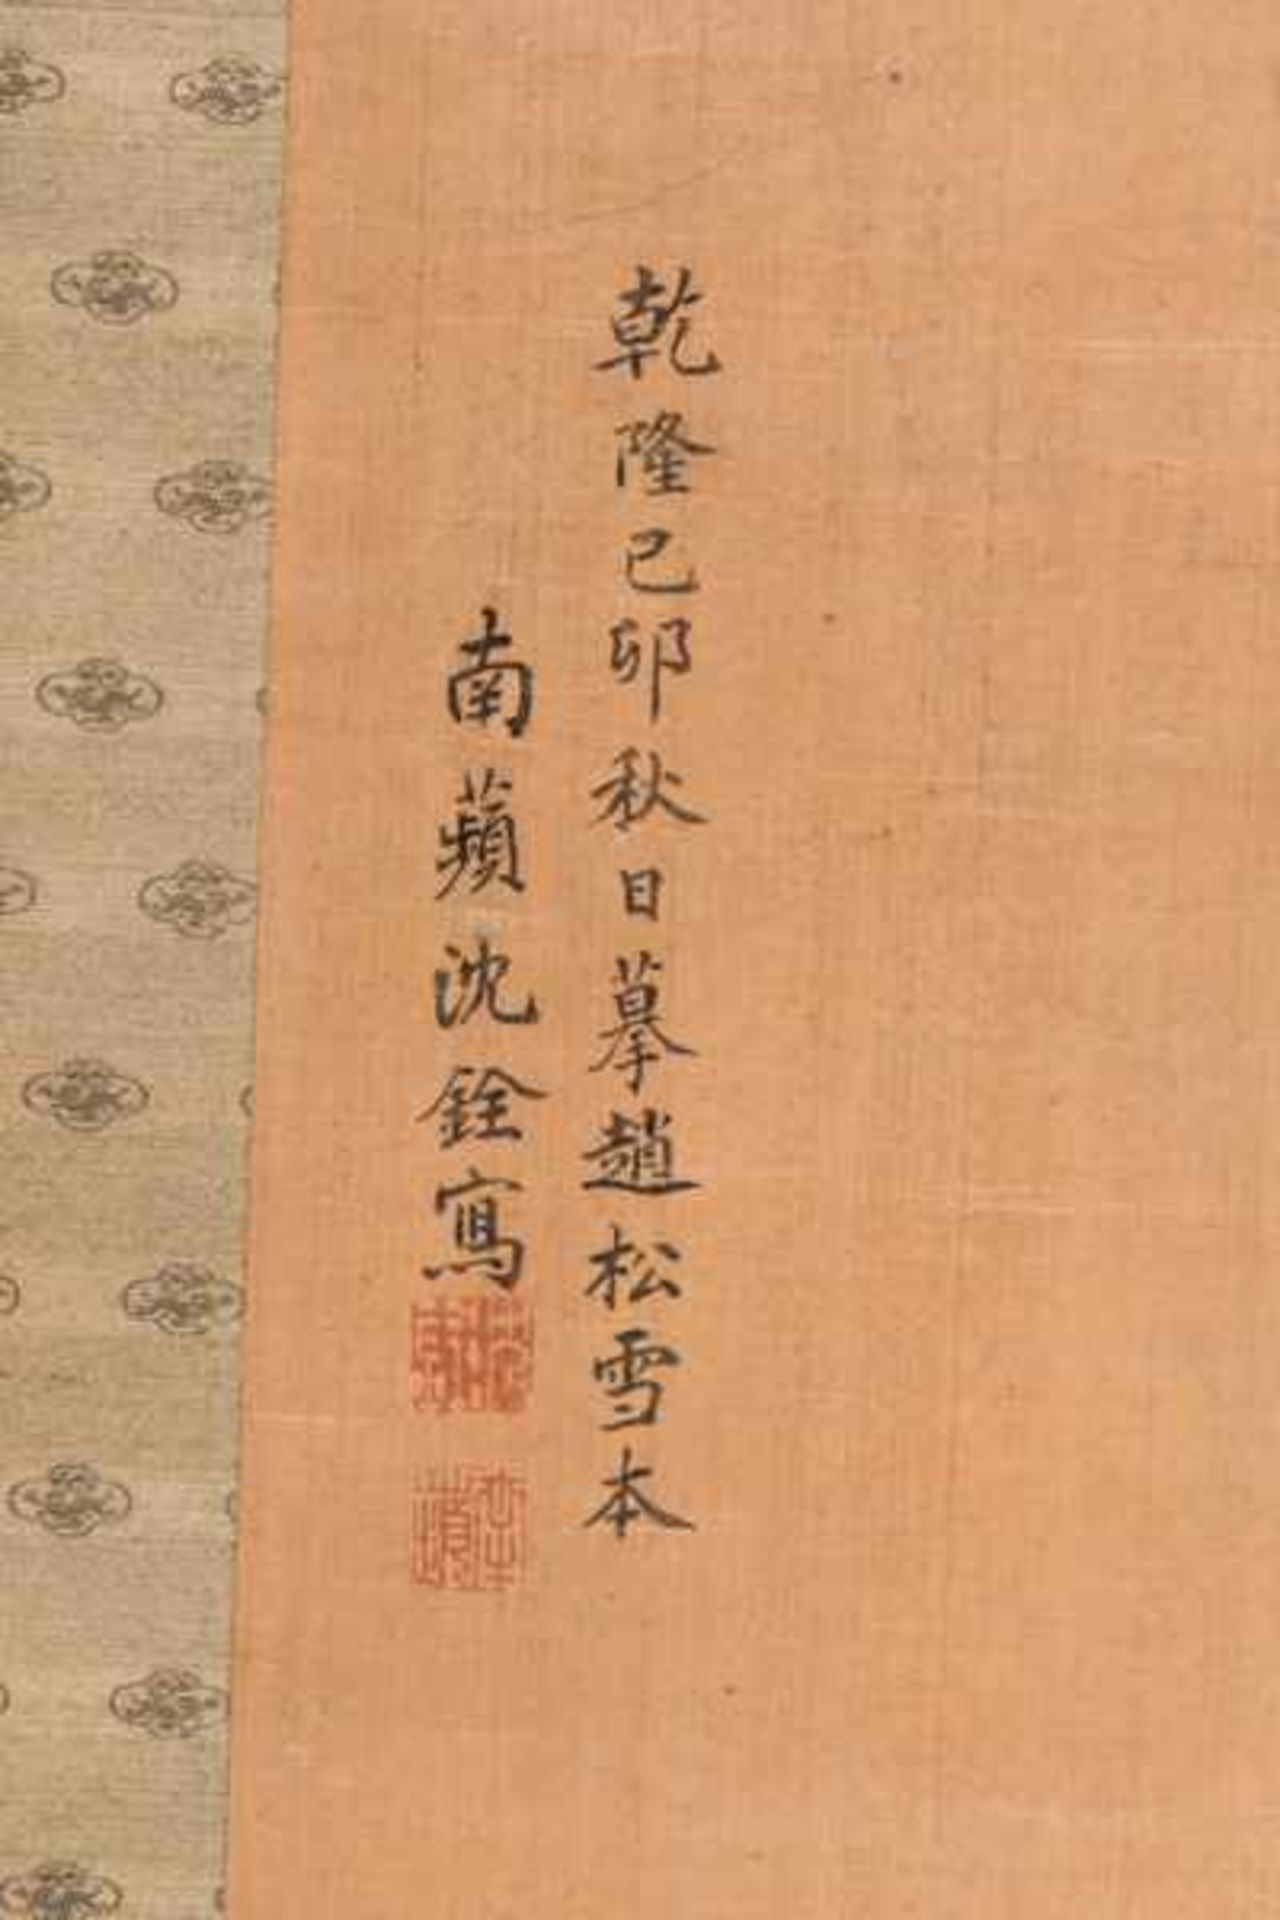 乾隆己卯秋日摹趙松雪本
南蘋沈銓寫